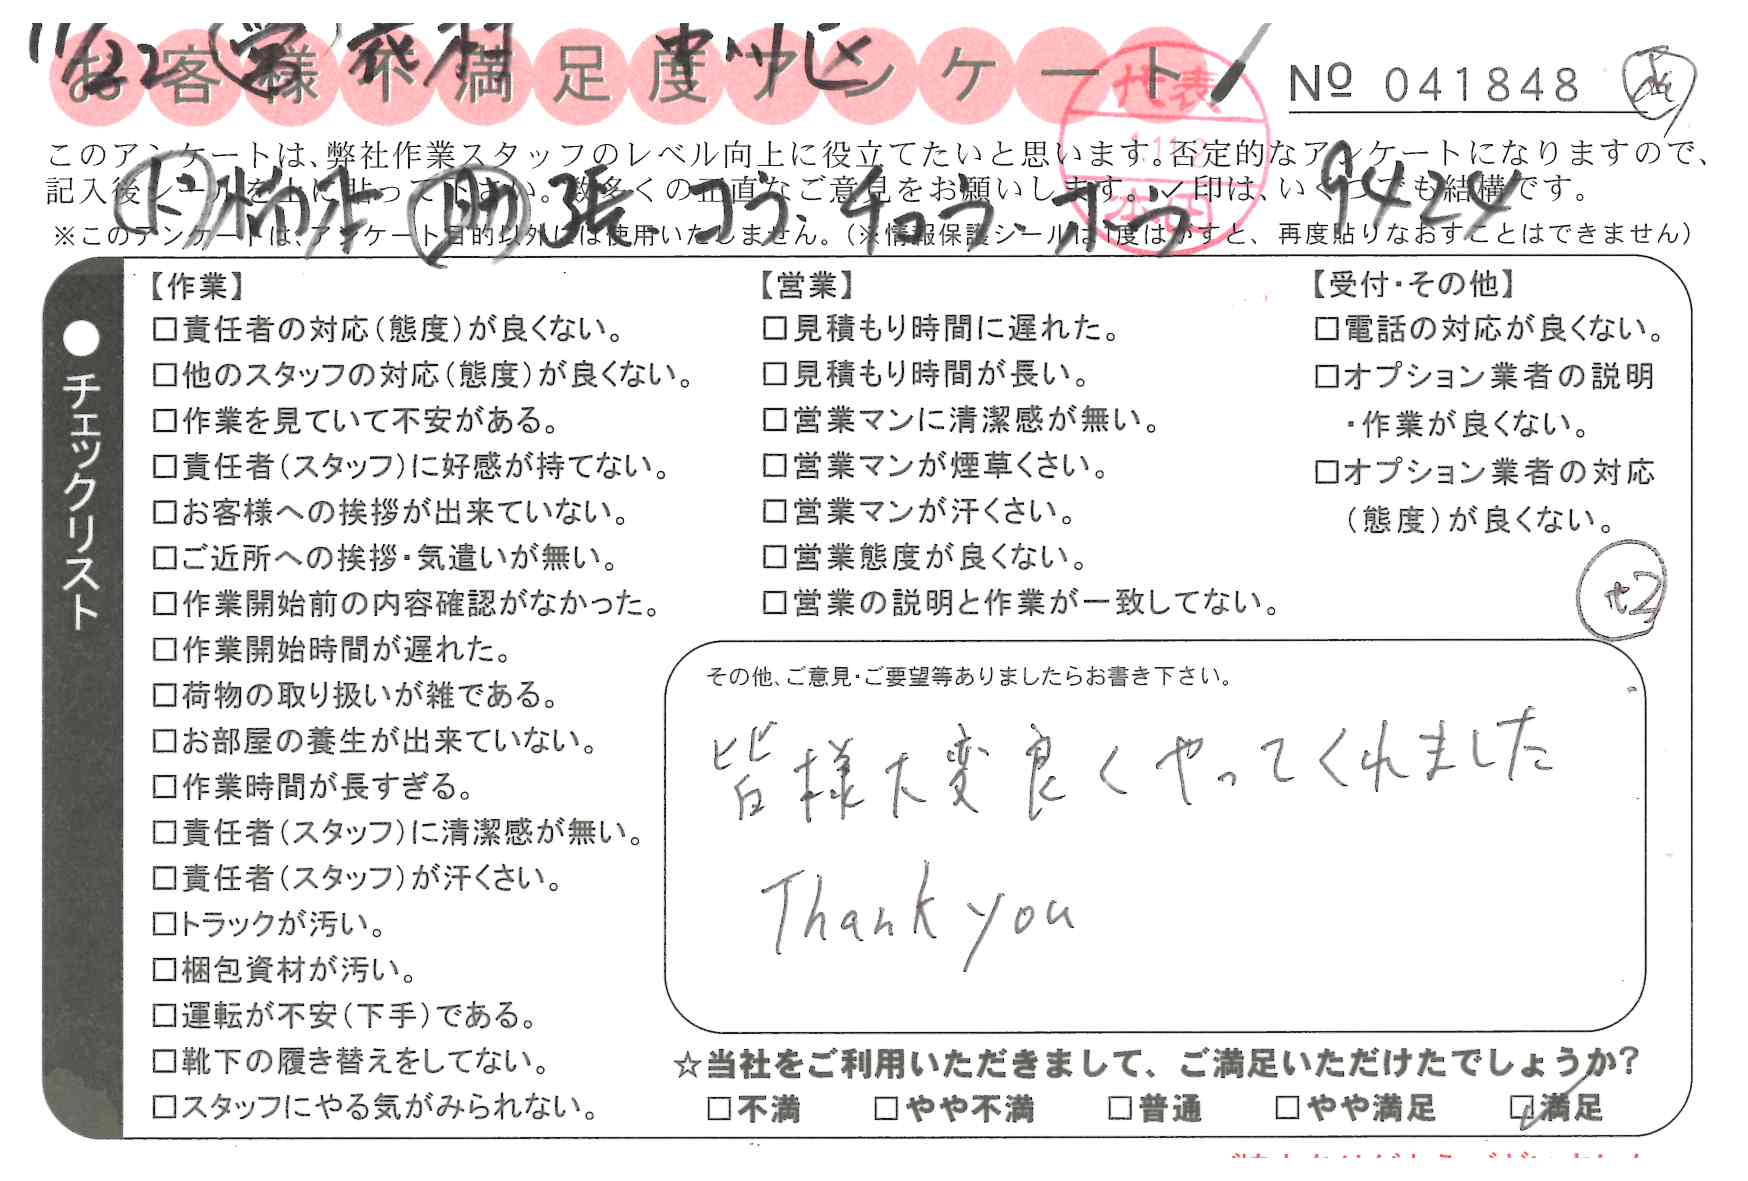 11/22 営 衣村 中川区
お客様不満足度アンケート
代表
Nº 041848
このアンケートは、弊社作業スタッフのレベル向上に役立てたいと思います。否定的なアンケートになりますので、
記入後シールを上に貼って下さい。数多くの正直なご意見をお願いします。✓印は、いくつでも結構です。
助 張、ゴウ、チョウ、ホウ 9424
本店
※このアンケートは、アンケート目的以外には使用いたしません。(※情報保護シールは1度はがすと、再度貼りなおすことはできません)
●チェックリスト
【作業】
□責任者の対応(態度)が良くない。
□他のスタッフの対応(態度)が良くない。
□作業を見ていて不安がある。
□責任者(スタッフ)に好感が持てない。
□お客様への挨拶が出来ていない。
□ご近所への挨拶・気遣いが無い。
□作業開始前の内容確認がなかった。
□作業開始時間が遅れた。
□荷物の取り扱いが雑である。
□お部屋の養生が出来ていない。
□作業時間が長すぎる。
□責任者(スタッフ)に清潔感が無い。
□責任者(スタッフ)が汗くさい。
□トラックが汚い。
□梱包資材が汚い。
□運転が不安(下手)である。
□靴下の履き替えをしてない。
□スタッフにやる気がみられない。
【営業】
□見積もり時間に遅れた。
□見積もり時間が長い。
□営業マンに清潔感が無い。
□営業マンが煙草くさい。
□営業マンが汗くさい。
□営業態度が良くない。
□営業の説明と作業が一致してない。
【受付・その他】
□電話の対応が良くない。
□オプション業者の説明
・作業が良くない。
□オプション業者の対応
(態度)が良くない。
±2
その他、ご意見・ご要望等ありましたらお書き下さい。
皆様大変良くやってくれました
Thank you
☆当社をご利用いただきまして、ご満足いただけたでしょうか?
□不満 □やや不満 □普通 □やや満足 ☑満足